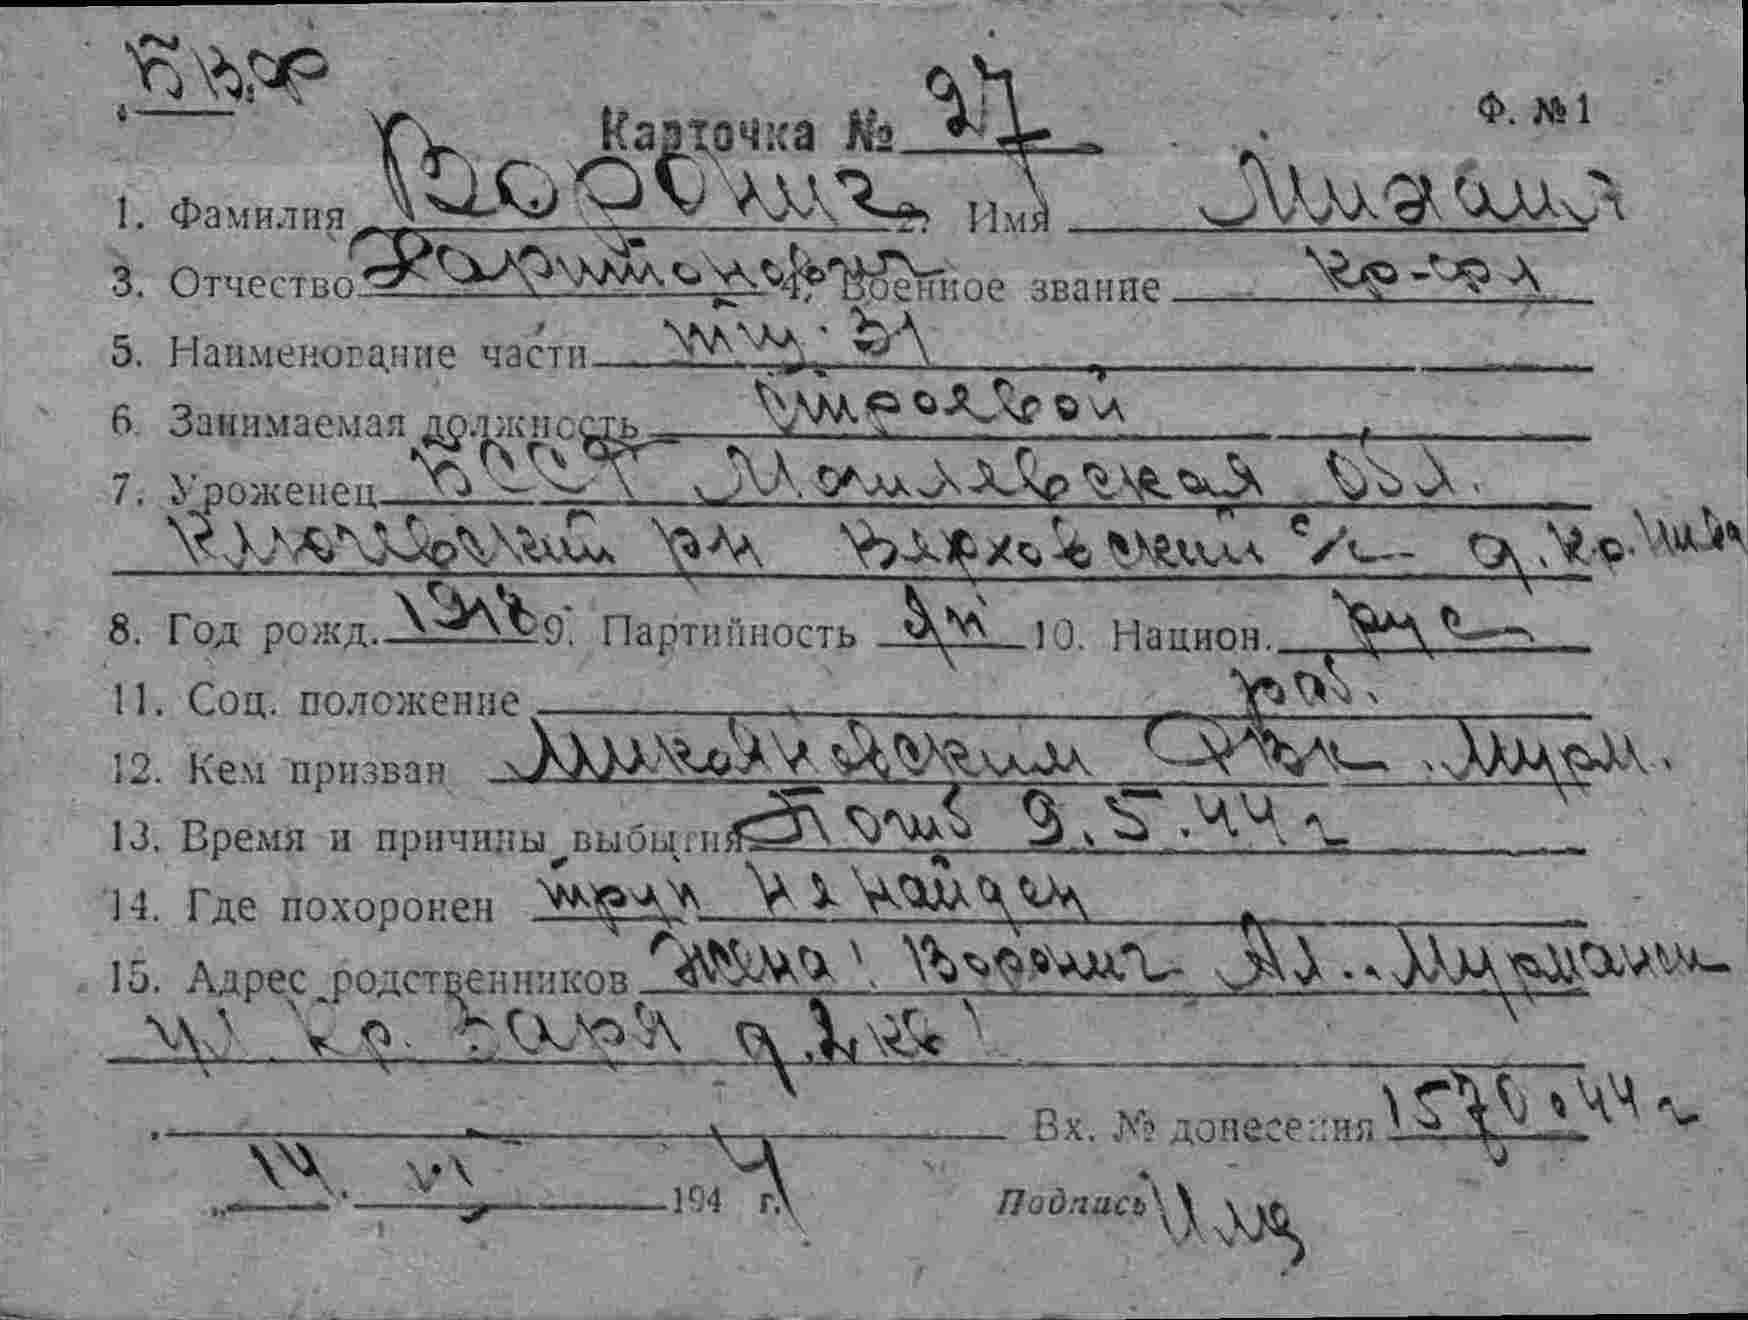 БВФ
Карточка № 27 Ф. №1
1. Фамилия Воронич 2. Имя Михаил
3. Отчество Харитонович 4. Военное звание кр-фл
5. Наименование части тщ. 31
6. Занимаемая должность строевой
7. Уроженец БССР Могилевская обл.
Ключевский рн Верховский с/с д. Кр. Нива
8. Год рожд. 1918 9. Партийность 10. Национ. рус
11. Соц. положение раб.
12. Кем призван Микояновским РВК. Мурм.
13. Время и причины выбытия Погиб 9.5.44 г
14. Где похоронен труп не найден
15. Адрес родственников Жена: Воронич Ал.. Мурманск
ул Кр. Заря д. 2 кв 1
Вх. № донесения 1570. 44 г
14. VI 1944 г. Подпись